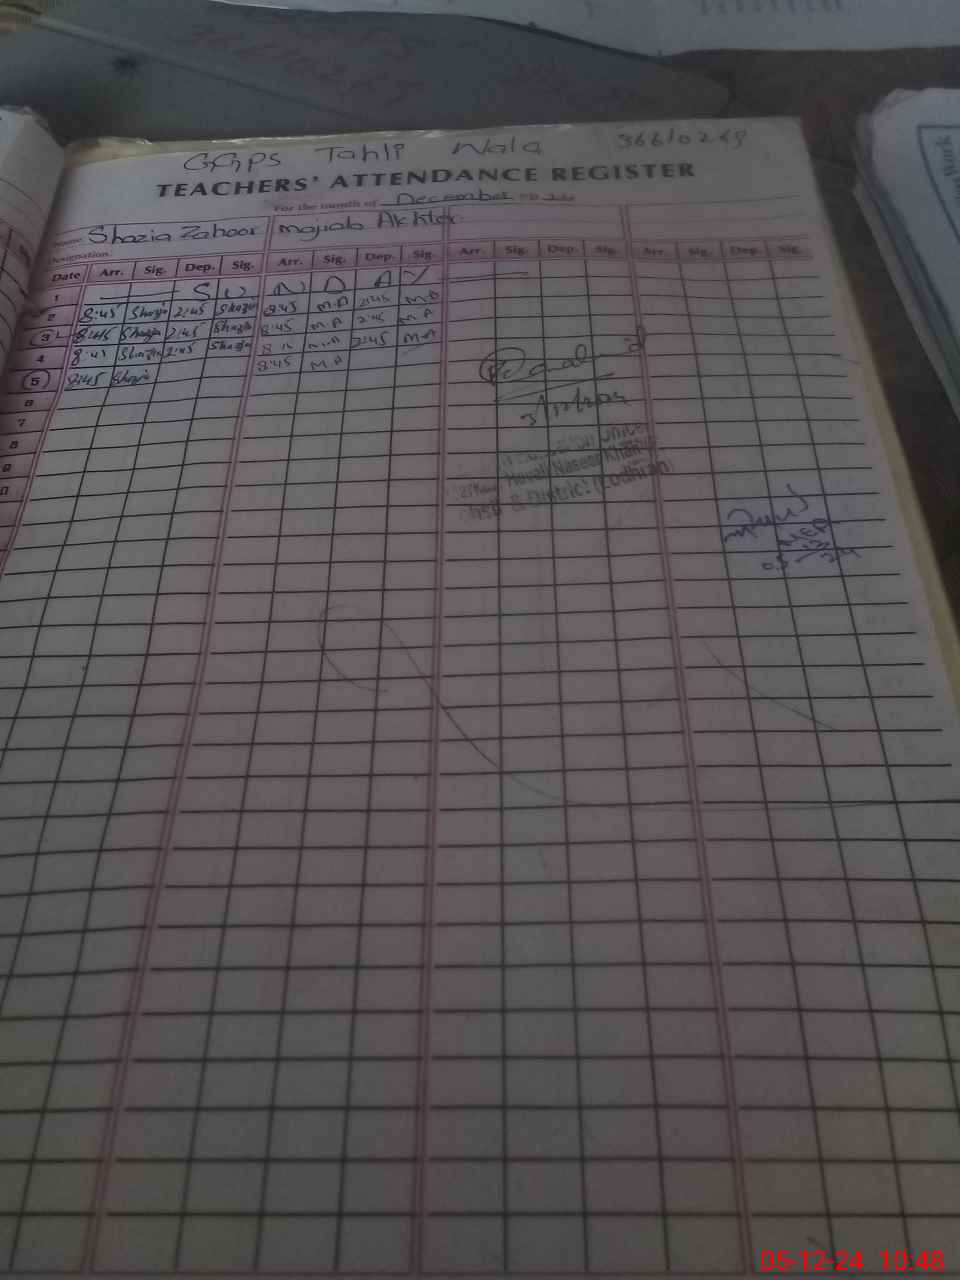 GGPS Tahli Wala 36610269
TEACHERS' ATTENDANCE REGISTER
For the month of December
Name Shazia Zahoor Majida Akhter
Designation
Date Arr. Sig. Dep. Sig. Arr. Sig. Dep. Sig. Arr. Sig. Dep. Sig. Arr. Sig. Dep. Sig.
1 S U N D A Y
2 8:45 Shazia 2:45 Shazia 8:45 M.A 2:45 M.A
3 8:45 Shazia 2:45 Shazia 8:45 M.A 2:45 M.A
4 8:45 Shazia 2:45 Shazia M.A 2:45 M.A
5 8:45 Shazia 8:45 M.A
6
7
8
9
Naseer Khan
District (Lodhran)
05-12-24 10:48